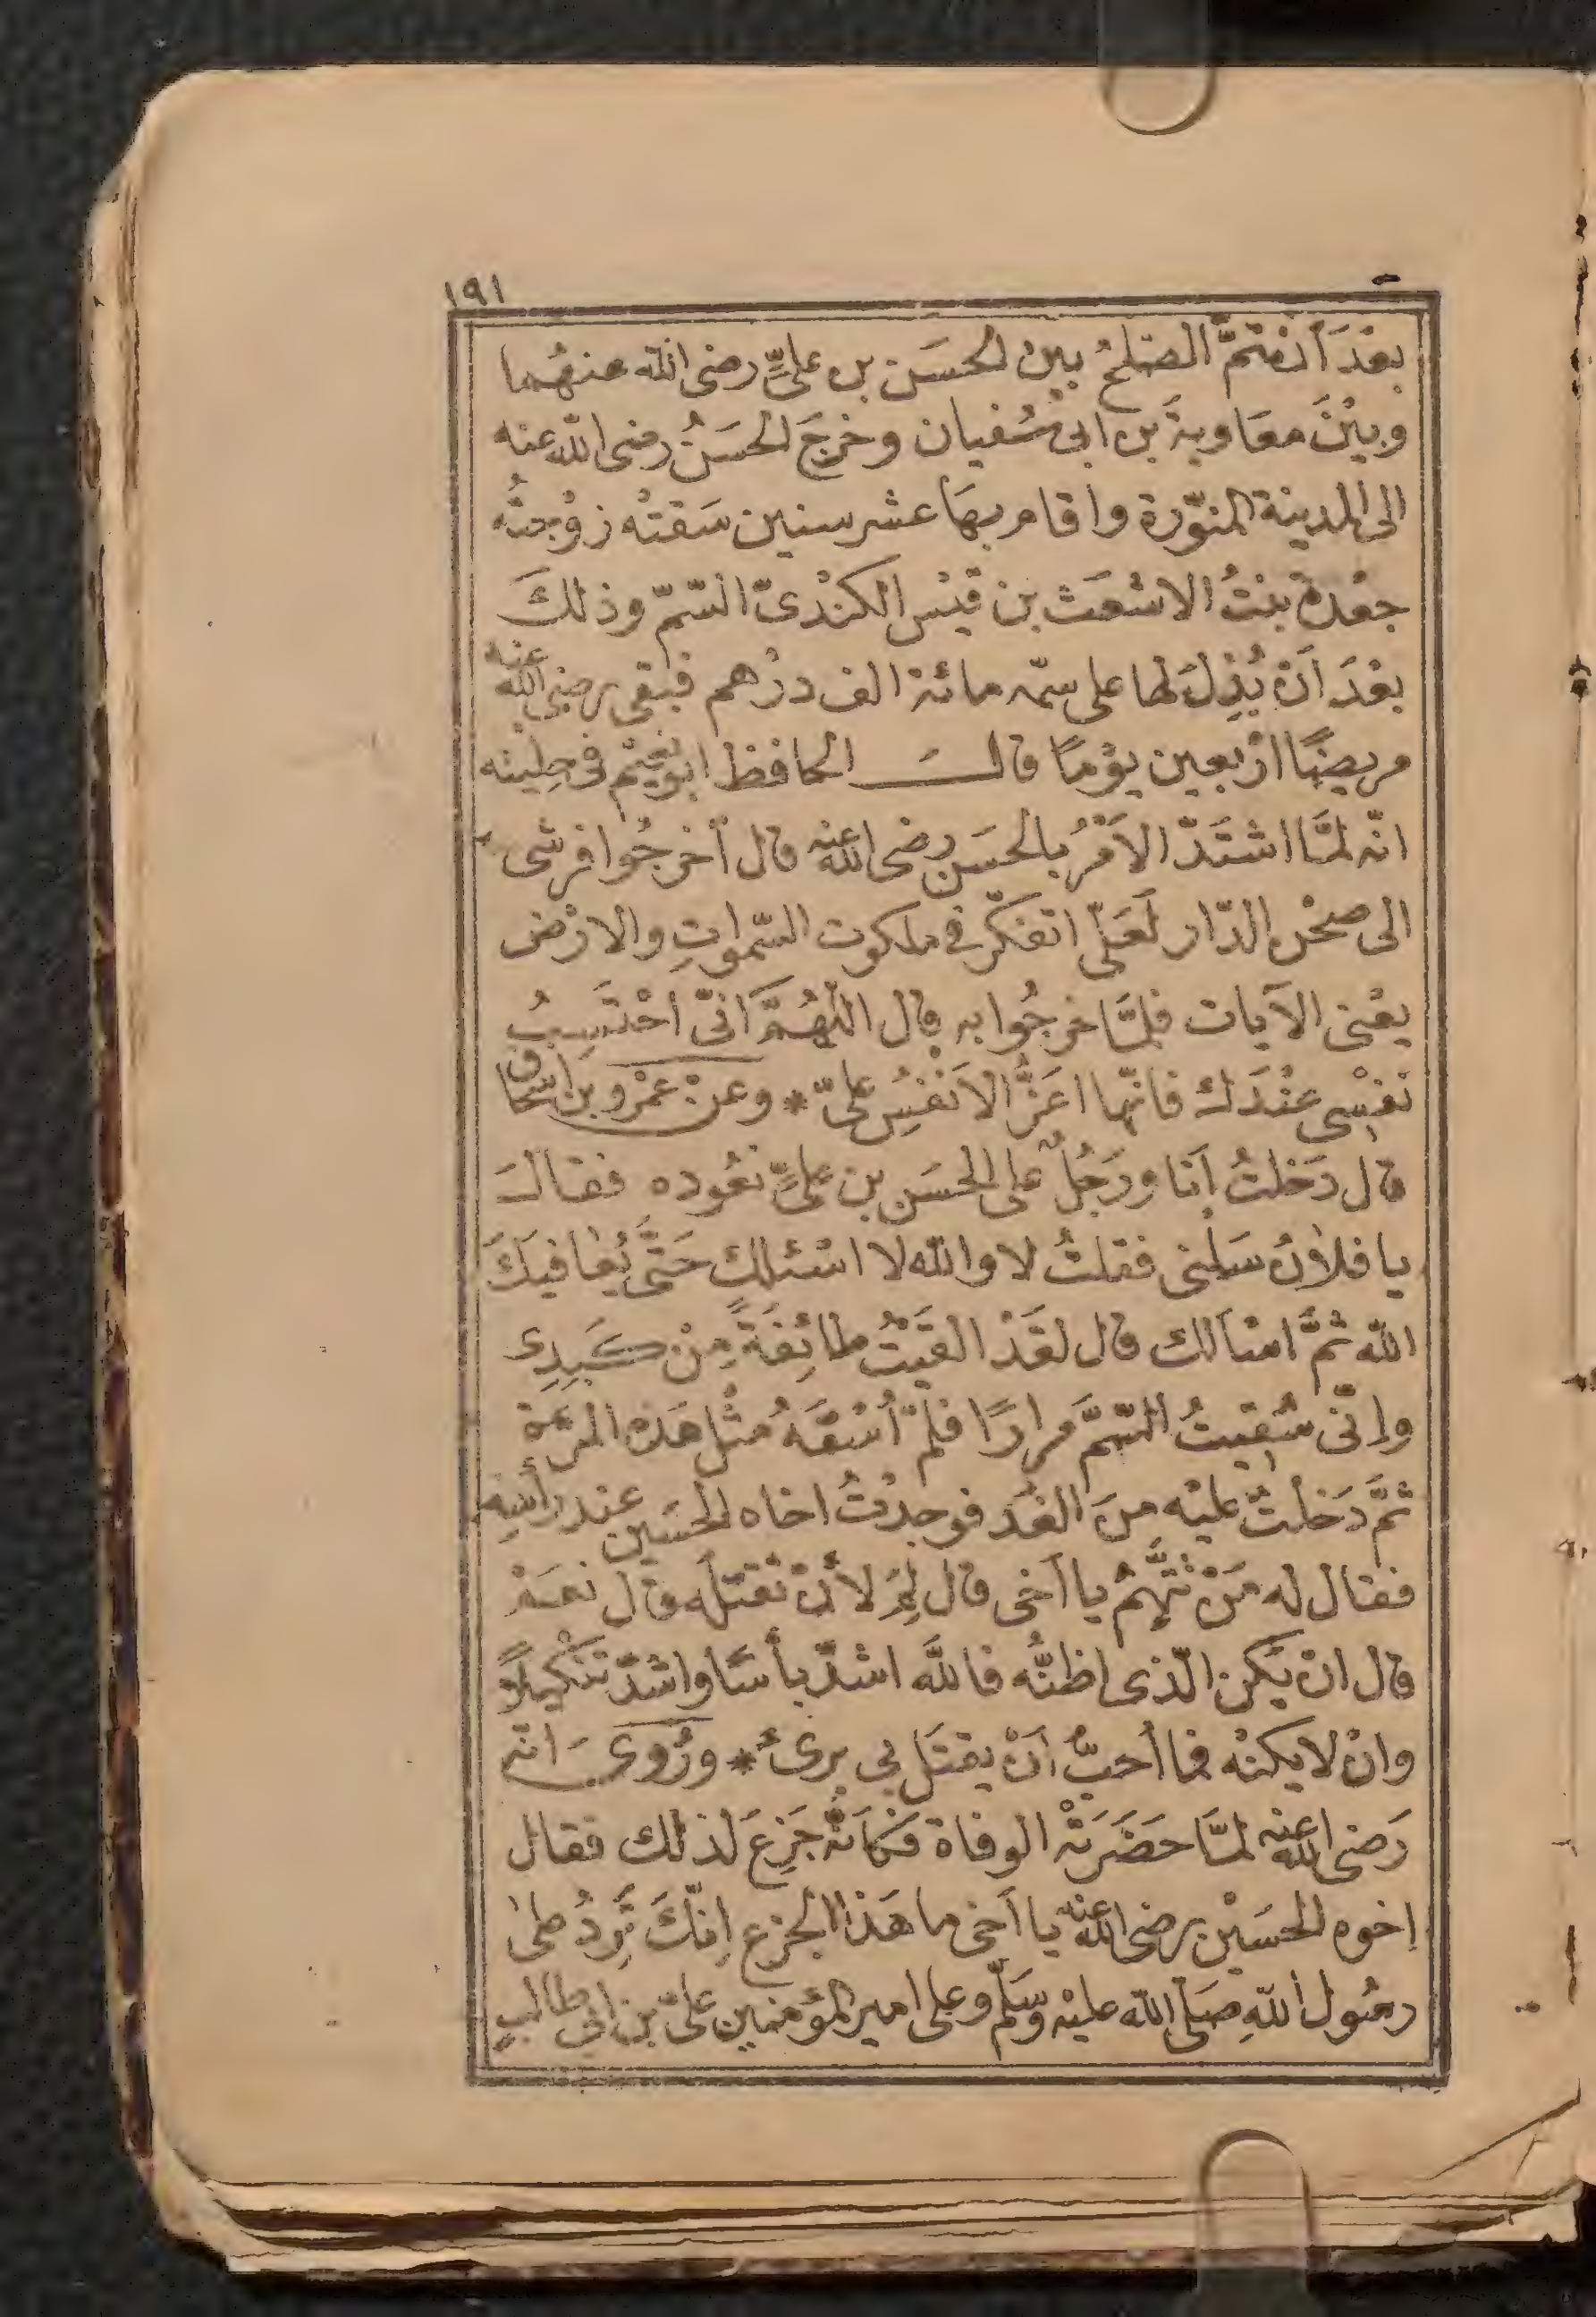 ١٩١
بعْدَ أنْ تمَّ الصّلحُ بين الحسَن بن علىٍّ رضى الله عنهُما
وبيْنَ معَاوية بن ابى سُفيان وخرجَ الحسَنُ رضى الله عنه
الى المدينة المنوّرة واقام بهَا عشر سنين سَقتْه زوْجتُه
جعْدة بنتُ الاشعَث بن قيْس الكنْدىّ السّمّ وذلكَ
بعْدَ أنْ بُذِلَ لها على سمّه مائة الف درْهم فبقى رضى الله عنه
مريضًا ارْبعين يوْمًا قالَ الحافظ ابو نعيْم فى حِليته
انّه لمَّا اشتَدّ الأمْرُ بالحسَن رضى الله عنه قال أخرجُوا فرشى
الى صحْن الدّار لَعَلّى اتفكّر فى ملكوت السّمواتِ والارْض
يعْنى الآيات فلمَّا خرجُوا به قال اللّهُمَّ انّى احْتَسِبُ
نفْسِى عنْدَك فانّها اعَزُّ الاَنفُسِ علىّ * وعنْ عمْرو بن اسْحاق
قال دَخلتُ أنا ورَجُلٌ على الحسَن بن علىٍّ نعُوده فقالَ
يا فلانُ سَلنى فقلتُ لا والله لا اسْئلك حَتَّى يُعافيَكَ
الله ثمَّ اسْالك قال لقَدْ القَيْتُ طائِفَةً مِنْ كَبِدِى
وإنّى سُقيتُ السّمَّ مرارًا فلمْ أُسْقَهُ مثْل هَذه المرّة
ثمَّ دَخلْتُ عليْه منَ الغَد فوجدْتُ اخاه الحسَين عند رأسِه
فقال له مَنْ تتَّهمُ يا أخى قال لِمَ لأنْ تقتله قال نعَمْ
قال انْ يَكن الّذى اظنُّه فاللَّه اشدّ بأسًا واشدّ تنْكيلًا
وانْ لا يكنْه فما أحبُّ أنْ يقتَل بى برىءٌ * ورُوىَ انّه
رَضى الله عنه لمَّا حضَرَتْه الوفاة فكأنّه جَزِعَ لذلك فقال
اخوه الحسَيْن رضى الله عنه يا أخى ما هَذا الجزع انّكَ تَرِدُ على
رسُول اللهِ صَلّى الله عليْه وسَلّم وعلى امير المؤمنين علىّ بن ابى طالبٍ